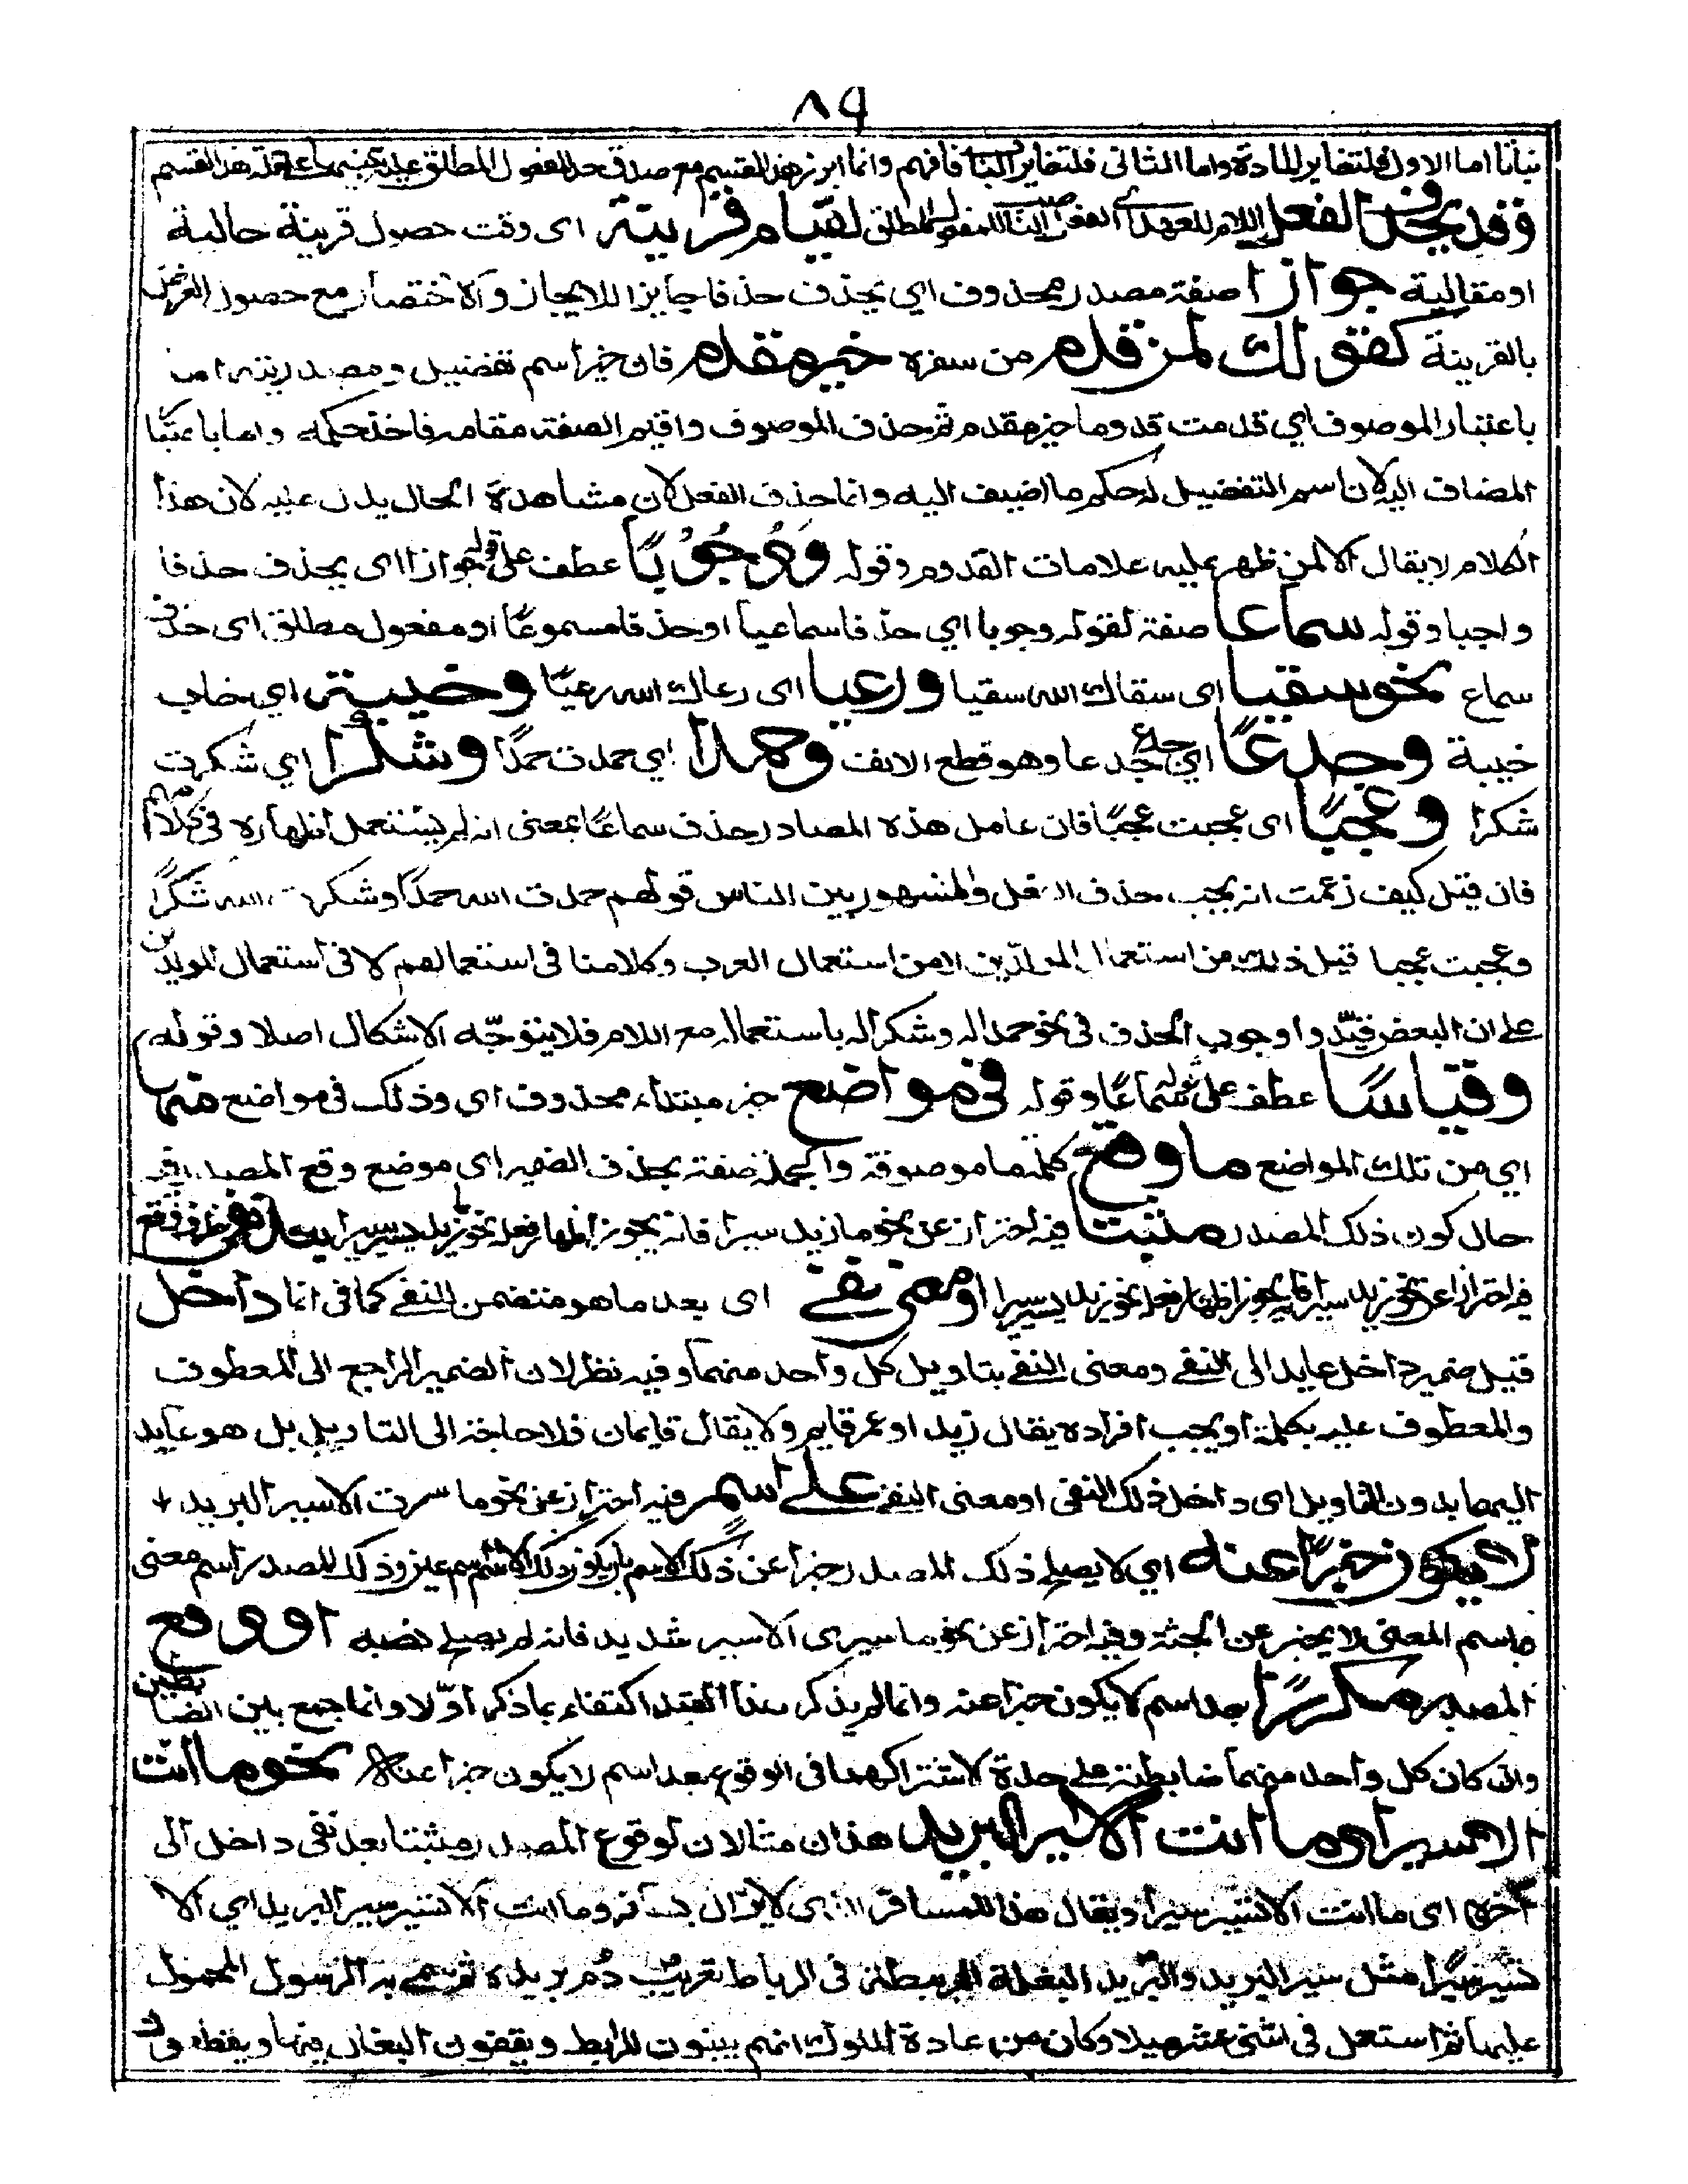 ٨٩
نباتا اما الاول فلتغاير المادة واما الثانى فلتغاير الباب فافهم وانما ابرز هذا القسم مع صدق حد المفعول المطلق عليه هذا القسم
وقد يحذف الفعل اللام للعهد اى الفعل الناصب للمفعول المطلق لقيام قرينة اى وقت حصول قرينة حالية
او مقالية جوازا صفة مصدر محذوف اي يحذف حذفا جايزا للايجاز والاختصار مع حصول الغرض
بالقرينة كقولك لمن قدم من سفره خير مقدم فان خيرا اسم تفضيل ومصدريته اما
باعتبار الموصوف اي قدمت قدوما خير مقدم ثم حذف الموصوف واقيم الصفة مقامه فاخذ حكمه واما باعتبار
المضاف اليه لان اسم التفضيل له حكم ما اضيف اليه وانما حذف الفعل لان مشاهدة الحال يدل عليه لان هذا
الكلام لا يقال الا لمن ظهر عليه علامات القدوم وقوله وَوُجُوْبًا عطف على قوله جوازا اى يحذف حذفا
واجبا وقوله سماعا صفة لقوله وجوبا اي حذفا سماعيا او حذفا مسموعًا او مفعول مطلق اى حذف
سماع نحو سقيا اى سقاك الله سقيا ورعيا اى رعاك الله رعيًا وخيبة اي خاب
خيبة وجدعًا اي جدع جدعا وهو قطع الانف وحمدا اي حمدت حمدًا وشكرا اي شكرت
شكرا وعجبًا اى عجبت عجبًا فان عامل هذه المصادر حذف سماعًا بمعنى انه لم يستعمل اظهاره فى كلامهم
فان قيل كيف زعمت انه يجب حذف الفعل والمشهور بين الناس قولهم حمدت الله حمدًا وشكرت الله شكرًا
وعجبت عجبا قيل ذلك من استعمال المولدين لا من استعمال العرب وكلامنا فى استعمالهم لا فى استعمال المولدين
على ان البعض قيّدوا وجوب الحذف فى نحو حمدا له وشكرا له باستعماله مع اللام فلا يتوجّه الاشكال اصلا وقوله
وقياسًا عطف على قوله سماعًا وقوله فى مواضع خبر مبتداء محذوف اى وذلك فى مواضع منها
اي من تلك المواضع ما وقع كلمة ما موصوفة والجملة صفة بحذف الضمير اى موضع وقع المصدر فيه
حال كون ذلك المصدر مثبتا فيه احتراز عن نحو ما زيد سيرا فانه يجوز اظهار فعله نحو ما زيد يسير سيرا بعد نفى
فيه احتراز عن نحو زيد سيرا فانه يجوز اظهار فعله نحو زيد يسير سيرا او معنى نفى اى بعد ما هو متضمن للنفى كما فى انما داخل
قيل ضمير داخل عايد الى النفى ومعنى النفى بتاويل كل واحد منهما وفيه نظر لان الضمير الراجع الى المعطوف
والمعطوف عليه بكلمة او يجب افراده يقال زيد او عمر قايم ولا يقال قايمان فلا حاجة الى التاويل بل هو عايد
اليهما بدون التاويل اى داخل ذلك النفى او معنى النفى على اسم فيه احتراز عن نحو ما سرت الا سير البريد
لا يكون خبرًا عنه اي لا يصلح ذلك المصدر خبرا عن ذلك الاسم بان يكون ذلك الاسم اسم عين وذلك المصدر اسم معنى
واسم المعنى لا يخبر عن الجثة وفيه احتراز عن نحو ما سيرى الا سير شديد فانه لم يصلح نصبه او وقع
المصدر مكررًا بعد اسم لا يكون خبرا عنه وانما لم يذكر هذا القيد اكتفاء بما ذكر اوّلا وانما جمع بين الضابطين
وان كان كل واحد منهما ضابطة على حدة لاشتراكهما فى الوقوع بعد اسم لا يكون خبرا عنه نحو ما انت
الا سيرا وما انت الا سير البريد هذان مثالان لوقوع المصدر مثبتا بعد نفى داخل الى
آخره اى ما انت الا تسير سيرا ويقال هذا للمسافر الذى لا يزال يسافر وما انت الا تسير سير البريد اي الا
تسير سيرًا مثل سير البريد والبريد البغلة المربطة فى الرباط تعريب دُم بريده ثم سمى به الرسول المحمول
عليها ثم استعمل فى اثنى عشر ميلا وكان من عادة الملوك انهم يبنون الرابط ويقفون البغال فيها ويقطعون